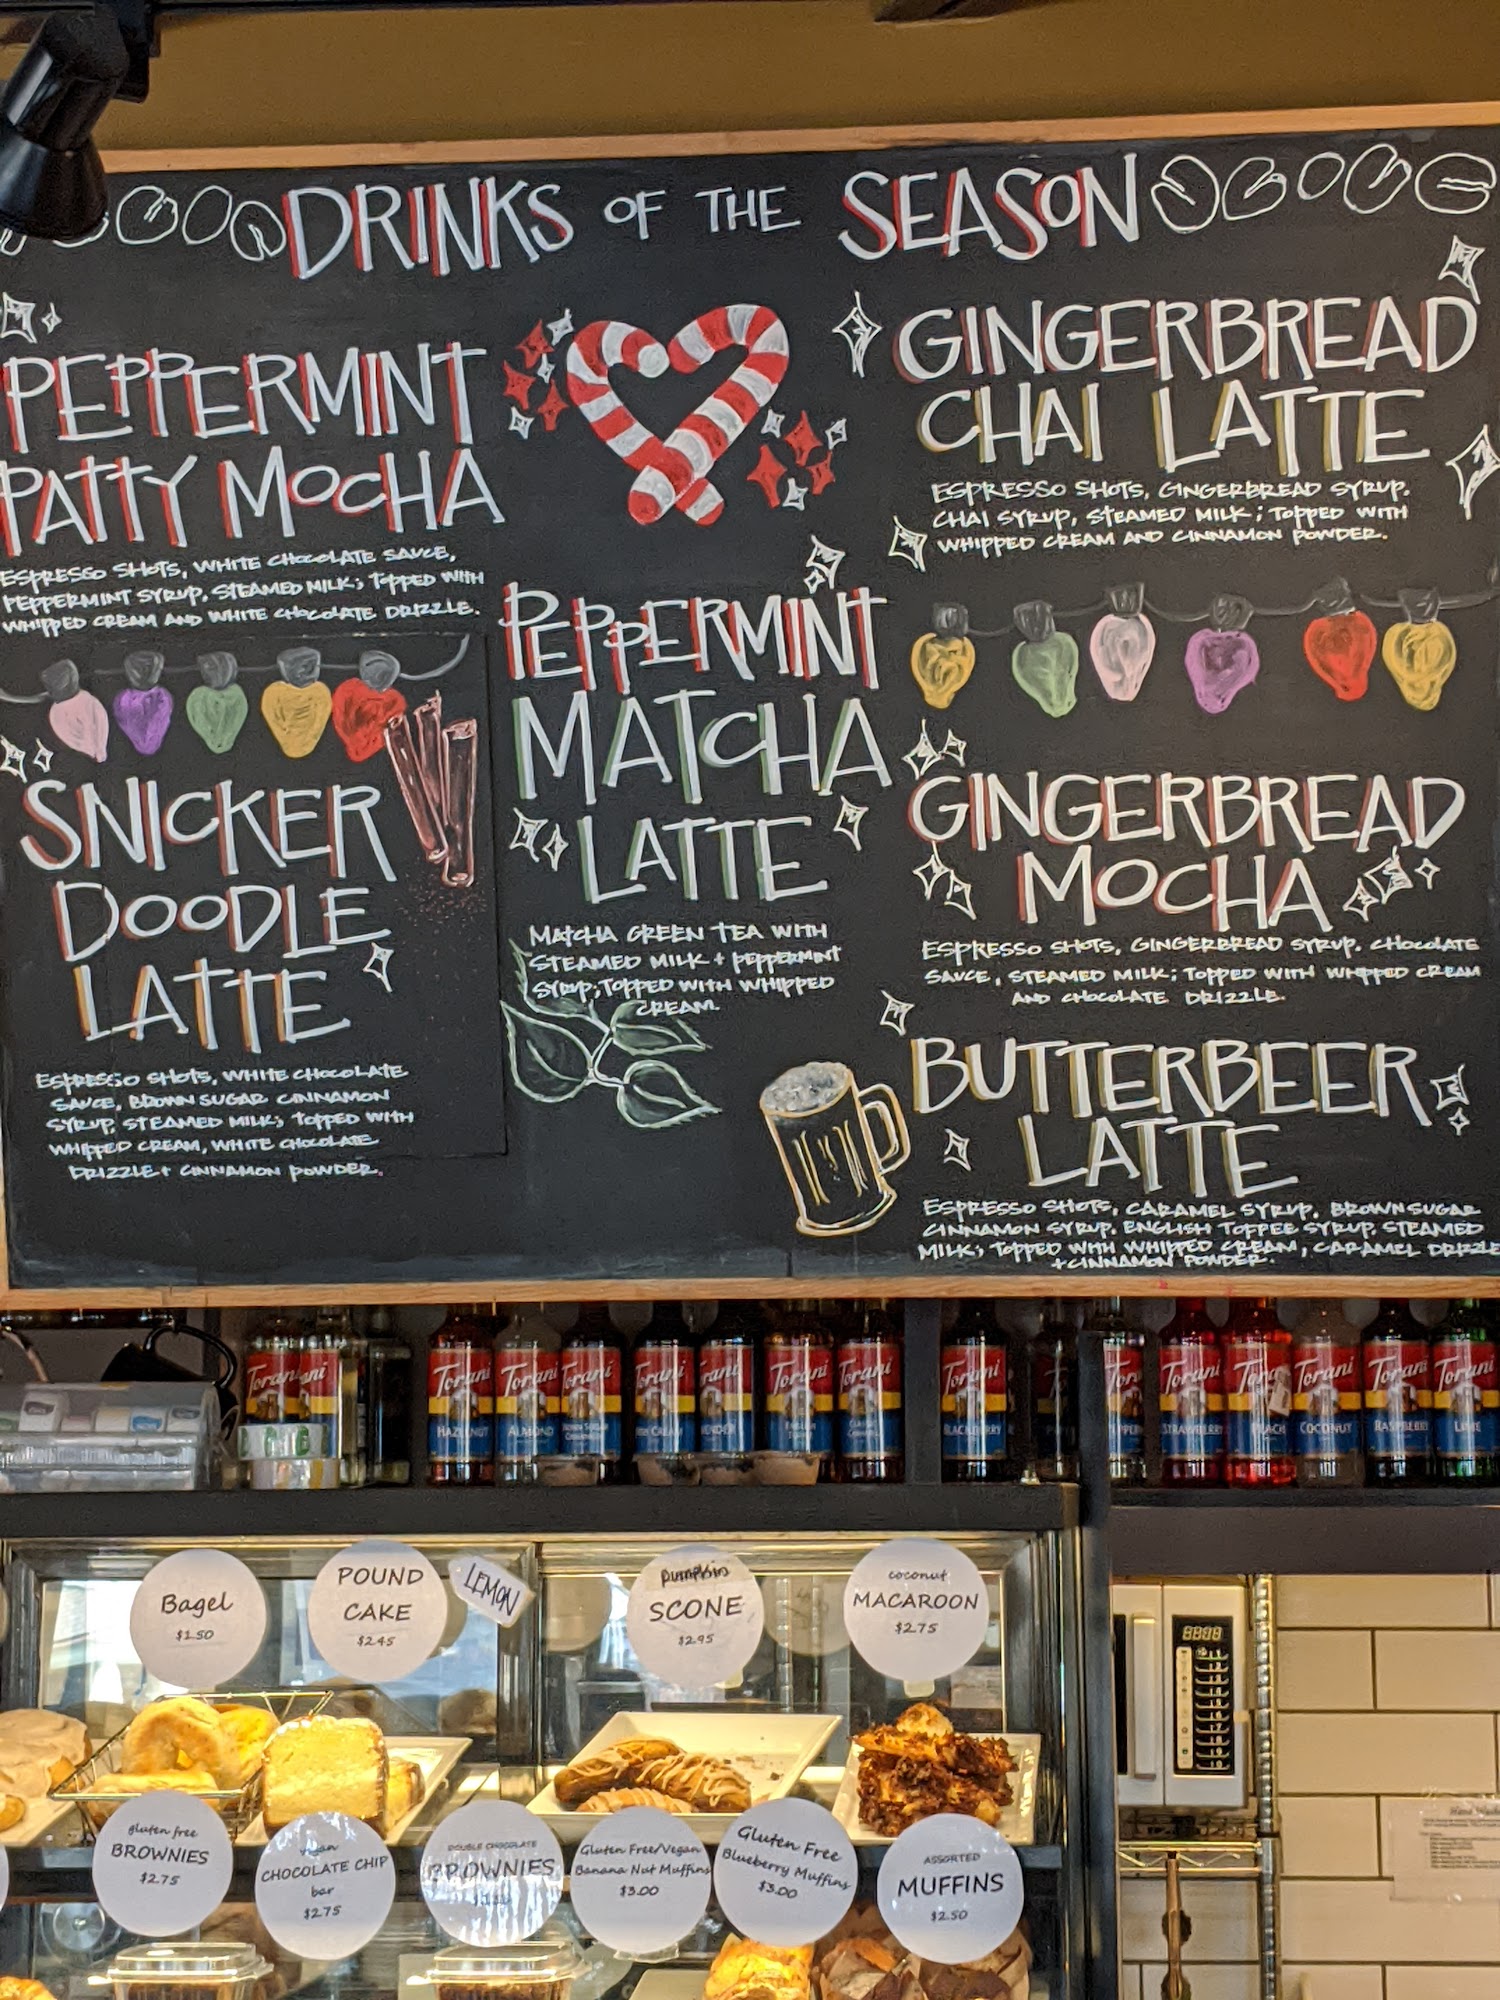 DRINKS OF THE SEASON
PEPPERMINT
PATTY MOCHA
ESPRESSO SHOTS, WHITE CHOCOLATE SAUCE,
PEPPERMINT SYRUP, STEAMED MILK; TOPPED WITH
WHIPPED CREAM AND WHITE CHOCOLATE DRIZZLE.
SNICKER
DOODLE
LATTE
ESPRESSO SHOTS, WHITE CHOCOLATE
SAUCE, BROWN SUGAR CINNAMON
SYRUP, STEAMED MILK; TOPPED WITH
WHIPPED CREAM, WHITE CHOCOLATE
DRIZZLE + CINNAMON POWDER.
PEPPERMINT
MATCHA
LATTE
MATCHA GREEN TEA WITH
STEAMED MILK + PEPPERMINT
SYRUP; TOPPED WITH WHIPPED
CREAM.
GINGERBREAD
CHAI LATTE
ESPRESSO SHOTS, GINGERBREAD SYRUP,
CHAI SYRUP, STEAMED MILK; TOPPED WITH
WHIPPED CREAM AND CINNAMON POWDER.
GINGERBREAD
MOCHA
ESPRESSO SHOTS, GINGERBREAD SYRUP, CHOCOLATE
SAUCE, STEAMED MILK; TOPPED WITH WHIPPED CREAM
AND CHOCOLATE DRIZZLE.
BUTTERBEER
LATTE
ESPRESSO SHOTS, CARAMEL SYRUP, BROWN SUGAR
CINNAMON SYRUP, ENGLISH TOFFEE SYRUP, STEAMED
MILK; TOPPED WITH WHIPPED CREAM, CARAMEL DRIZZLE
+ CINNAMON POWDER.
Torani
Torani
HAZELNUT
Torani
ALMOND
Torani
Torani
Torani
Torani
ENGLISH
Torani
CLASSIC
Torani
BLACKBERRY
Torani
STRAWBERRY
Torani
PEACH
Torani
COCONUT
Torani
RASPBERRY
Torani
LIME
Bagel
$1.50
POUND
CAKE
$2.45
LEMON
pumpkin
SCONE
$2.95
coconut
MACAROON
$2.75
gluten free
BROWNIES
$2.75
vegan
CHOCOLATE CHIP
bar
$2.75
DOUBLE CHOCOLATE
BROWNIES
Gluten Free/Vegan
Banana Nut Muffins
$3.00
Gluten Free
Blueberry Muffins
$3.00
ASSORTED
MUFFINS
$2.50